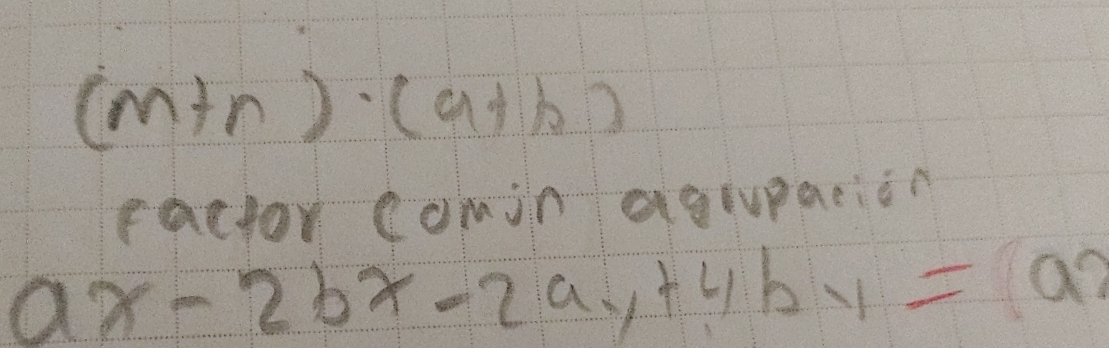 (m+n)·(a+b)
factor común agrupación
ax-2bx-2ay+4by = (a